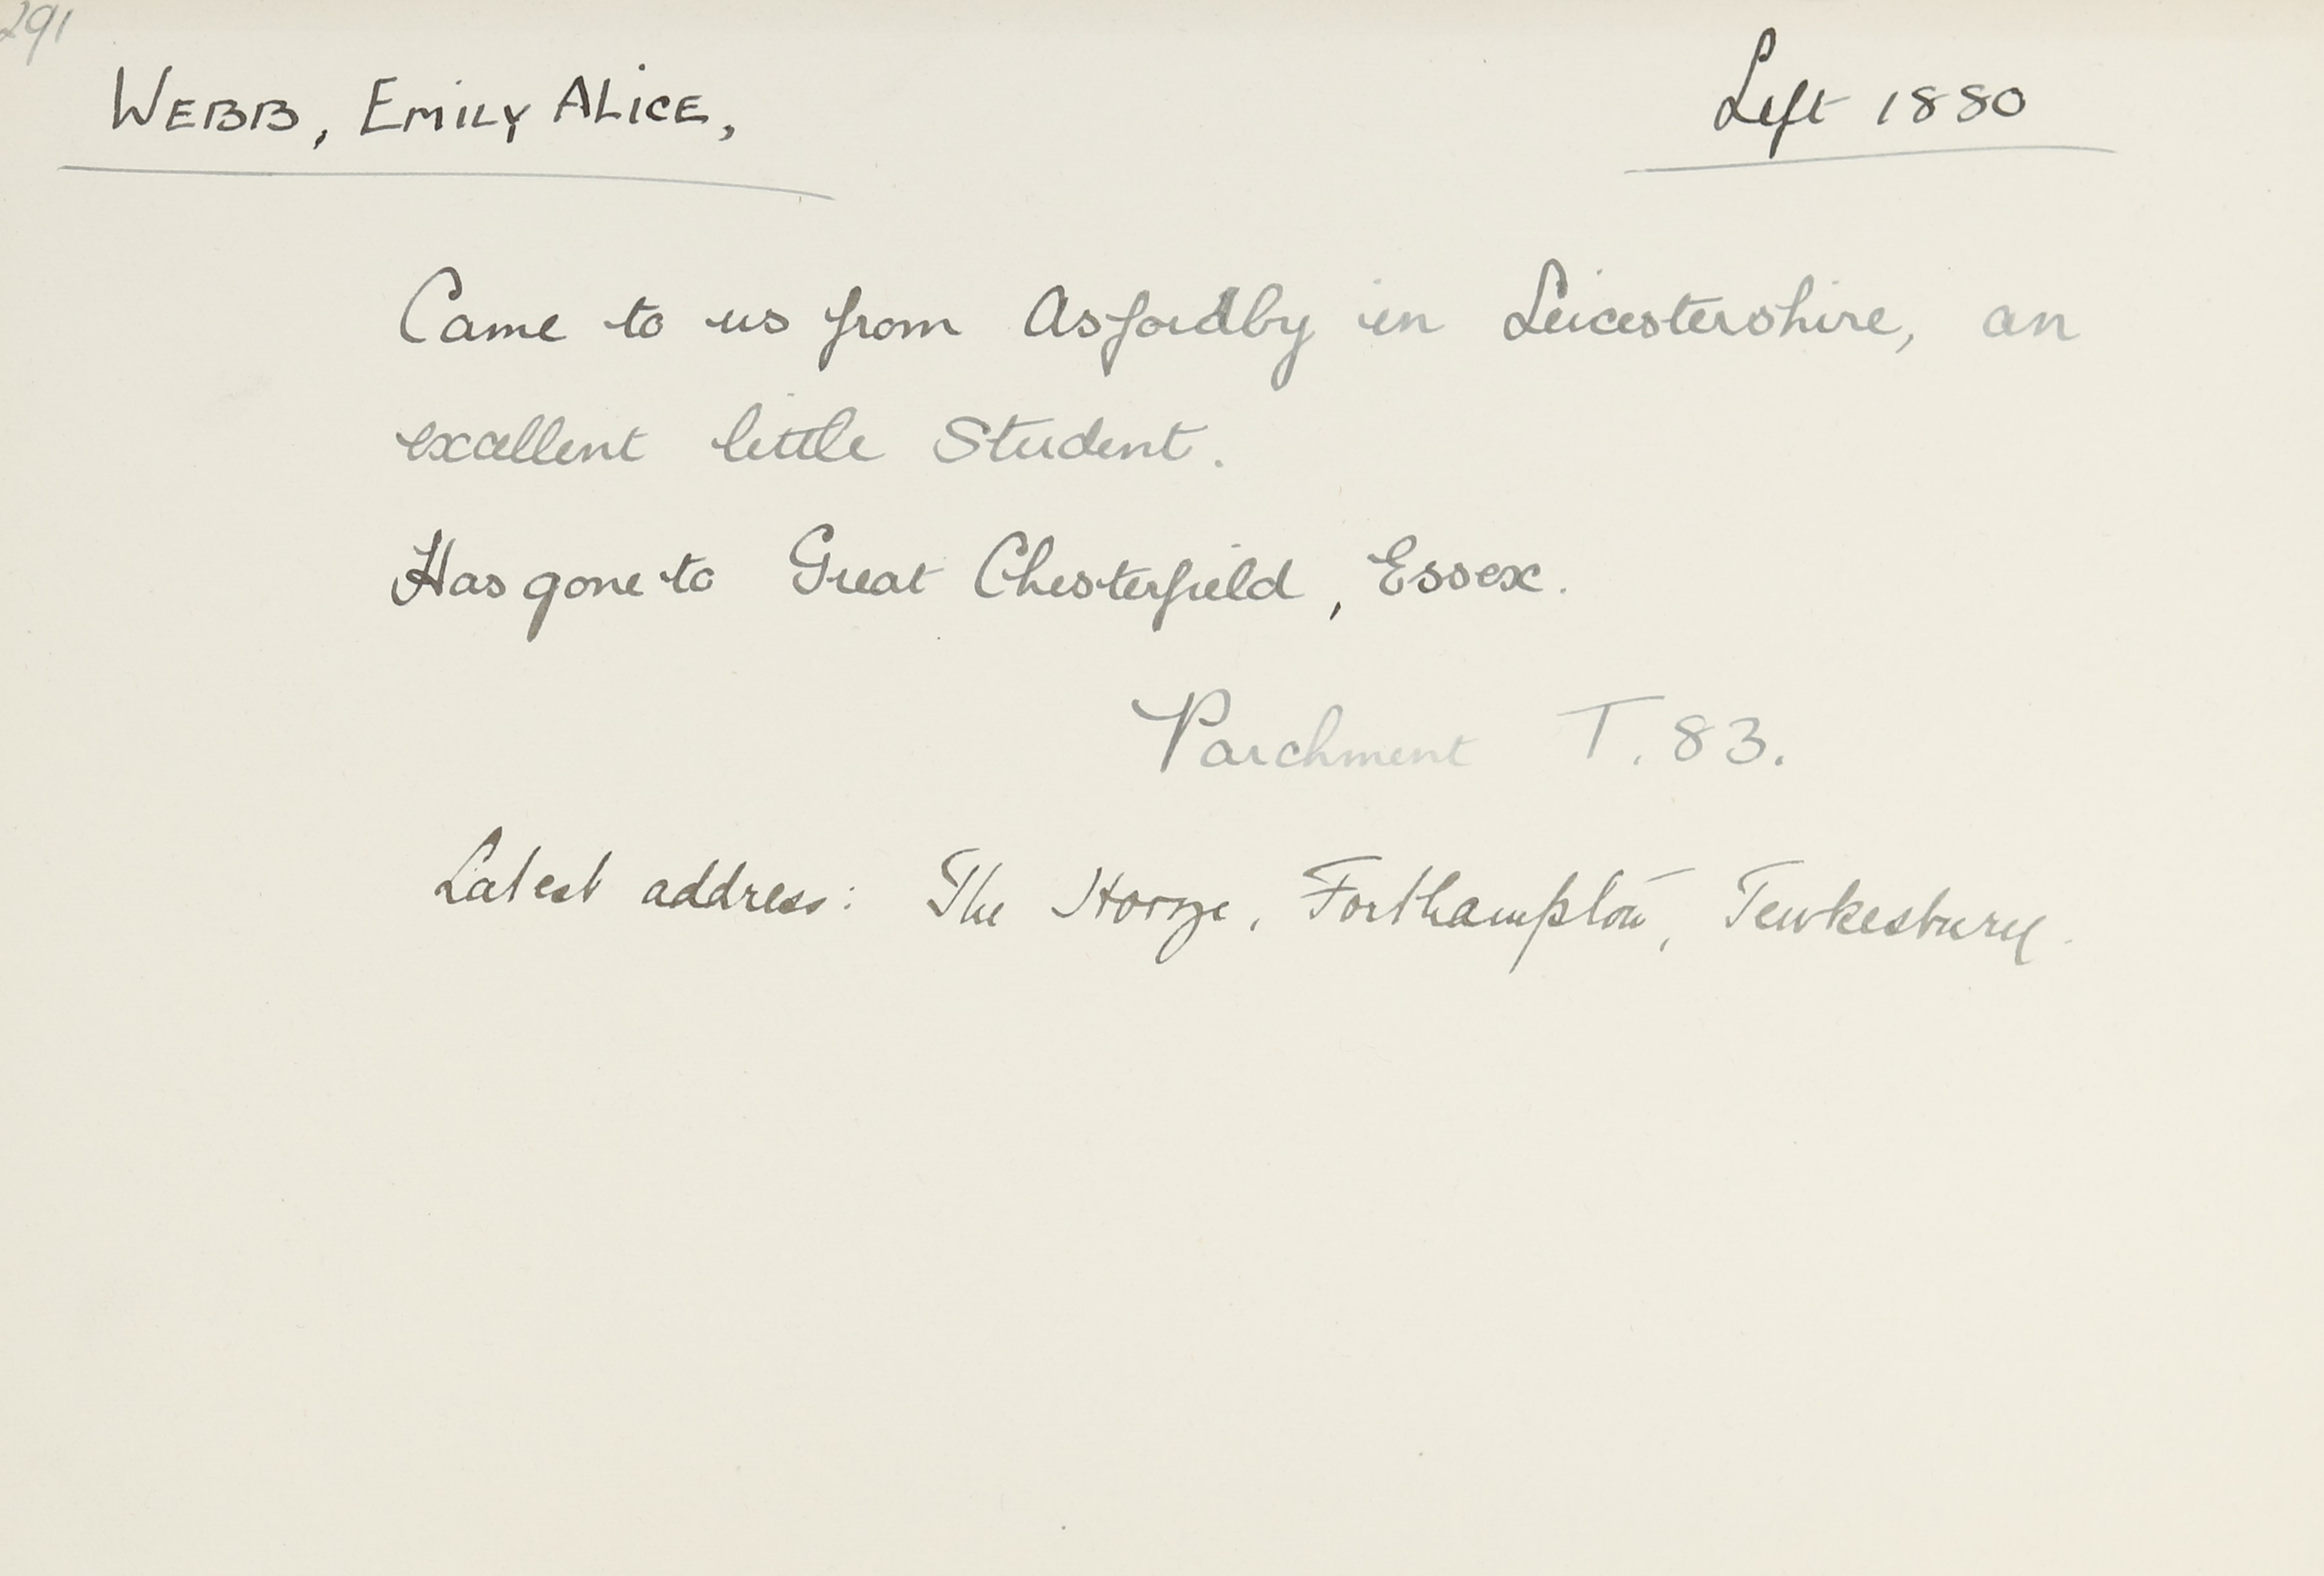 291
WEBB, EMILY ALICE,
Left 1880
Came to us from Asfordby in Leicestershire, an
excellent little Student.
Has gone to Great Chesterfield, Essex.
Parchment T. 83.
Latest address: The , Forthampton, Tewkesbury.